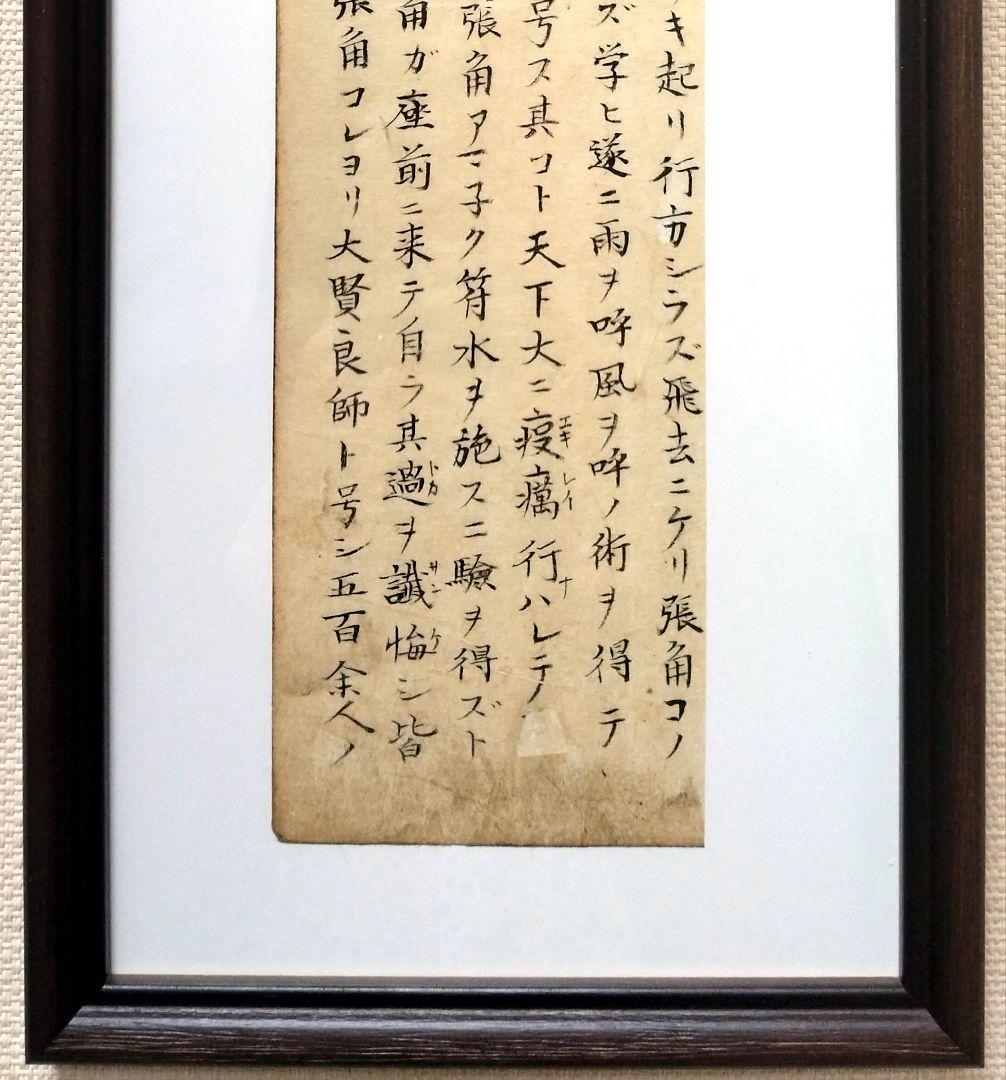 キ起リ行方シラズ飛去ニケリ張角コノ
ズ学ヒ遂ニ雨ヲ呼風ヲ呼ノ術ヲ得テ
号ス其コト天下大ニ疫癘行ハレテ
張角アマ子ク符水ヲ施スニ驗ヲ得ズト
角ガ座前ニ来テ自ラ其過ヲ讖悔シ皆
張角コレヨリ大賢良師ト号シ五百余人ノ